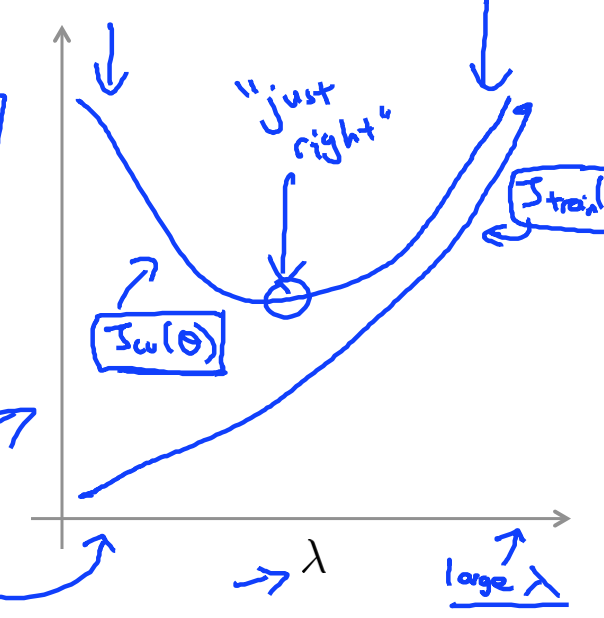 "just
right"
J train (
J cv (θ)
λ
large λ